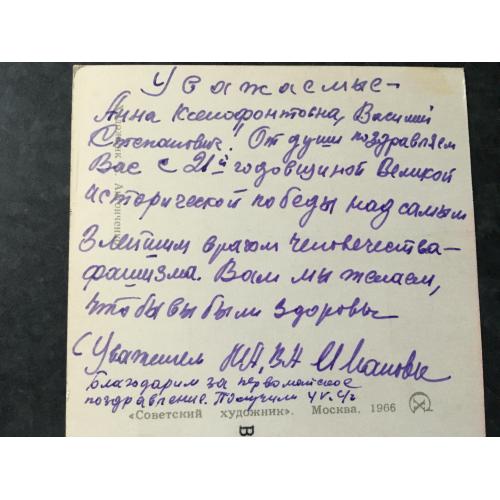 Уважаемые-
Анна Ксенофонтовна, Василий
Степанович! От души поздравляем
Вас с 21й годовщиной Великой
исторической победы над самым
злейшим врагом человечества-
фашизма. Вам мы желаем,
чтобы вы были здоровы
С Уважением
Благодарим за первомайское
поздравление. Получили 4V.
«Советский художник». Москва. 1966
В
Художник